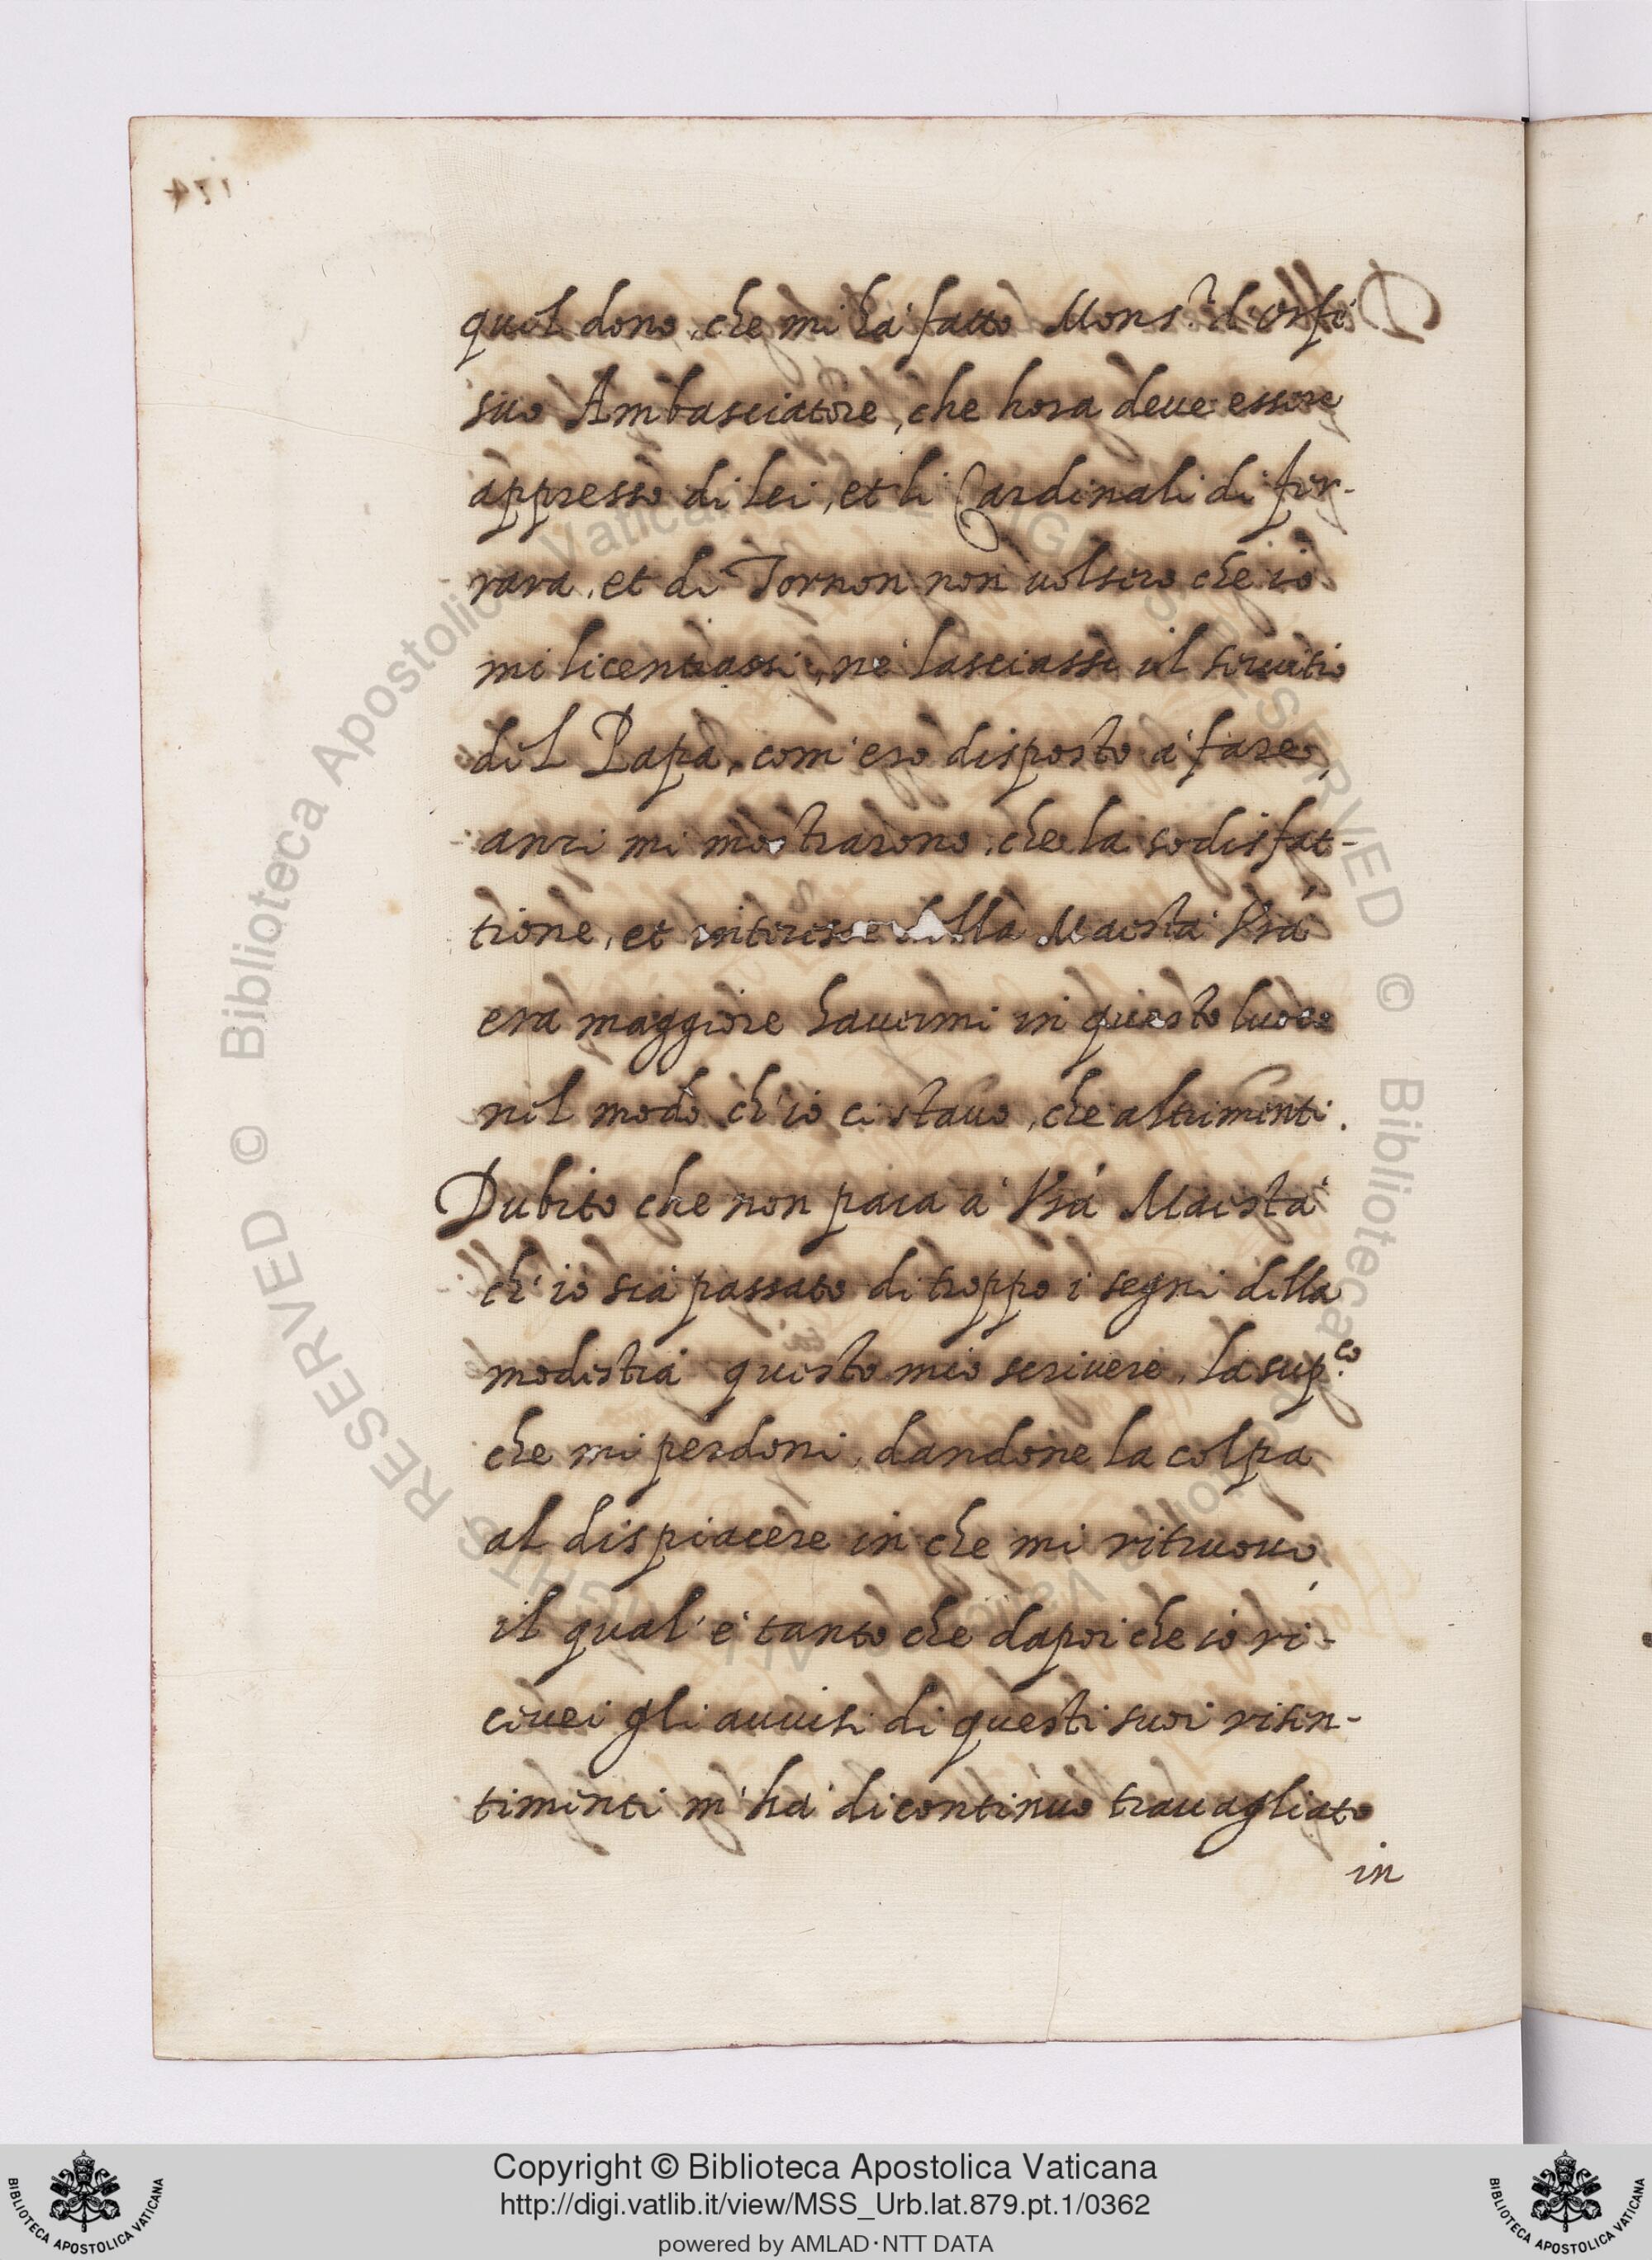 quel dono, che mi ha' fatto Mons.r d'Orfe'
suo Ambasciatore, che hora deue essere
appresso di lei, et li Cardinali di Fer-
rara, et di Tornon non uolsero che io
mi licentiassi, ne' lasciassi il seruitio
del Papa, com'ero disposto a' fare,
anzi mi mostrarono, che la sodisfat-
tione, et interesse della Maesta' Vra
era maggiore hauermi in questo luoco
nel modo ch'io ci stauo, che altrimenti.
Dubito che non paia a' Vra Maesta'
ch'io sia passato di troppo i segni della
modestia questo mio scriuere, la sup.co
che mi perdoni, dandone la colpa
al dispiacere in che mi ritruouo
il qual'e' tanto che dapoi che io ri-
ceuei gli auuisi di questi suoi risen-
timenti m'ha' di continuo trauagliato
in
Copyright © Biblioteca Apostolica Vaticana
http://digi.vatlib.it/view/MSS_Urb.lat.879.pt.1/0362
powered by AMLAD·NTT DATA
BIBLIOTECA APOSTOLICA VATICANA
BIBLIOTECA APOSTOLICA VATICANA